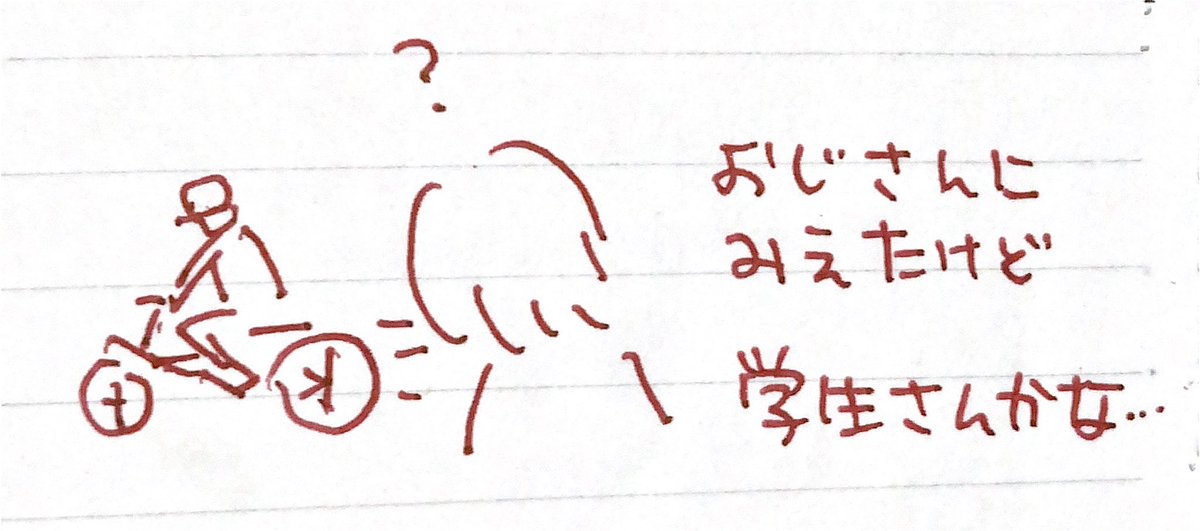 ?
おじさんに
みえたけど
学生さんかな…